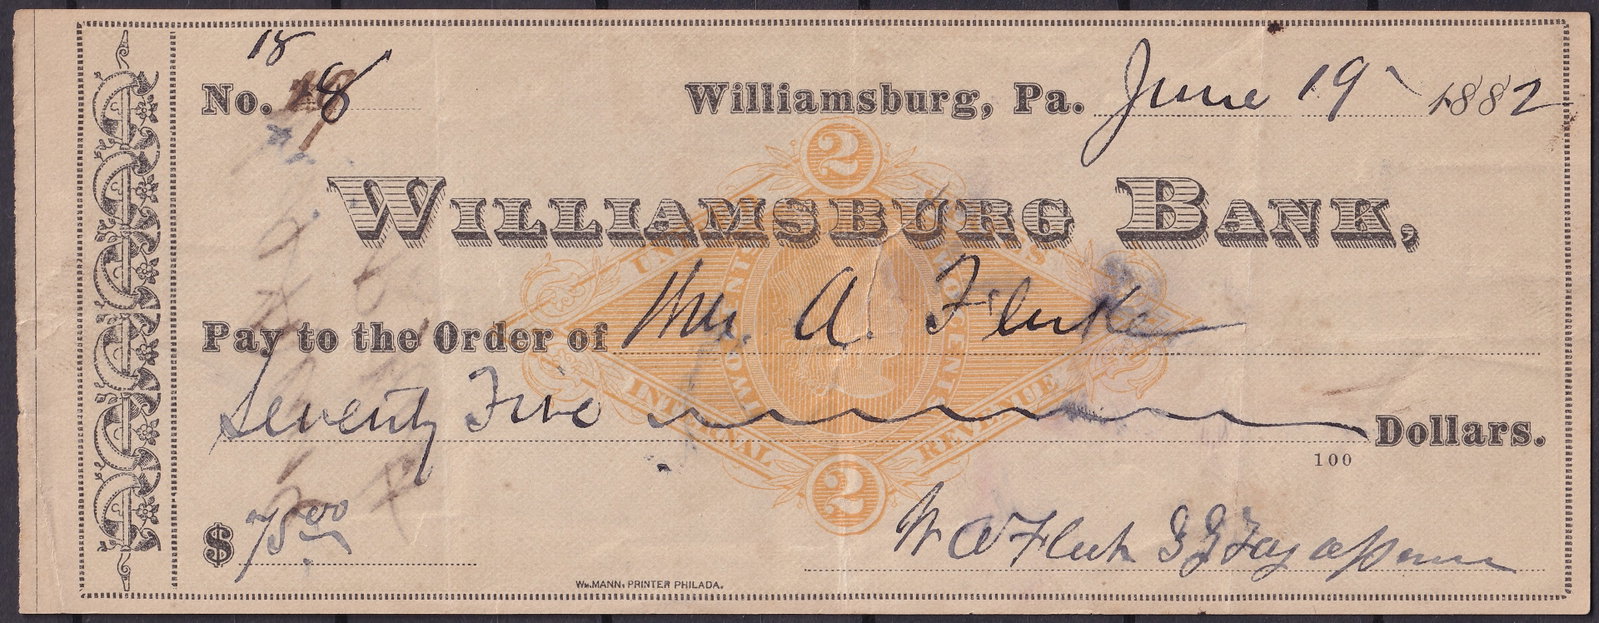 18
No. 18
Williamsburg, Pa. June 19 1882
2
WILLIAMSBURG BANK,
UNITED STATES
Pay to the Order of A. Fluke
TWO CENTS
Seventy Five Dollars.
INTERNAL REVENUE
100
2
$ 75.00
W A Fluke
WM. MANN, PRINTER PHILADA.